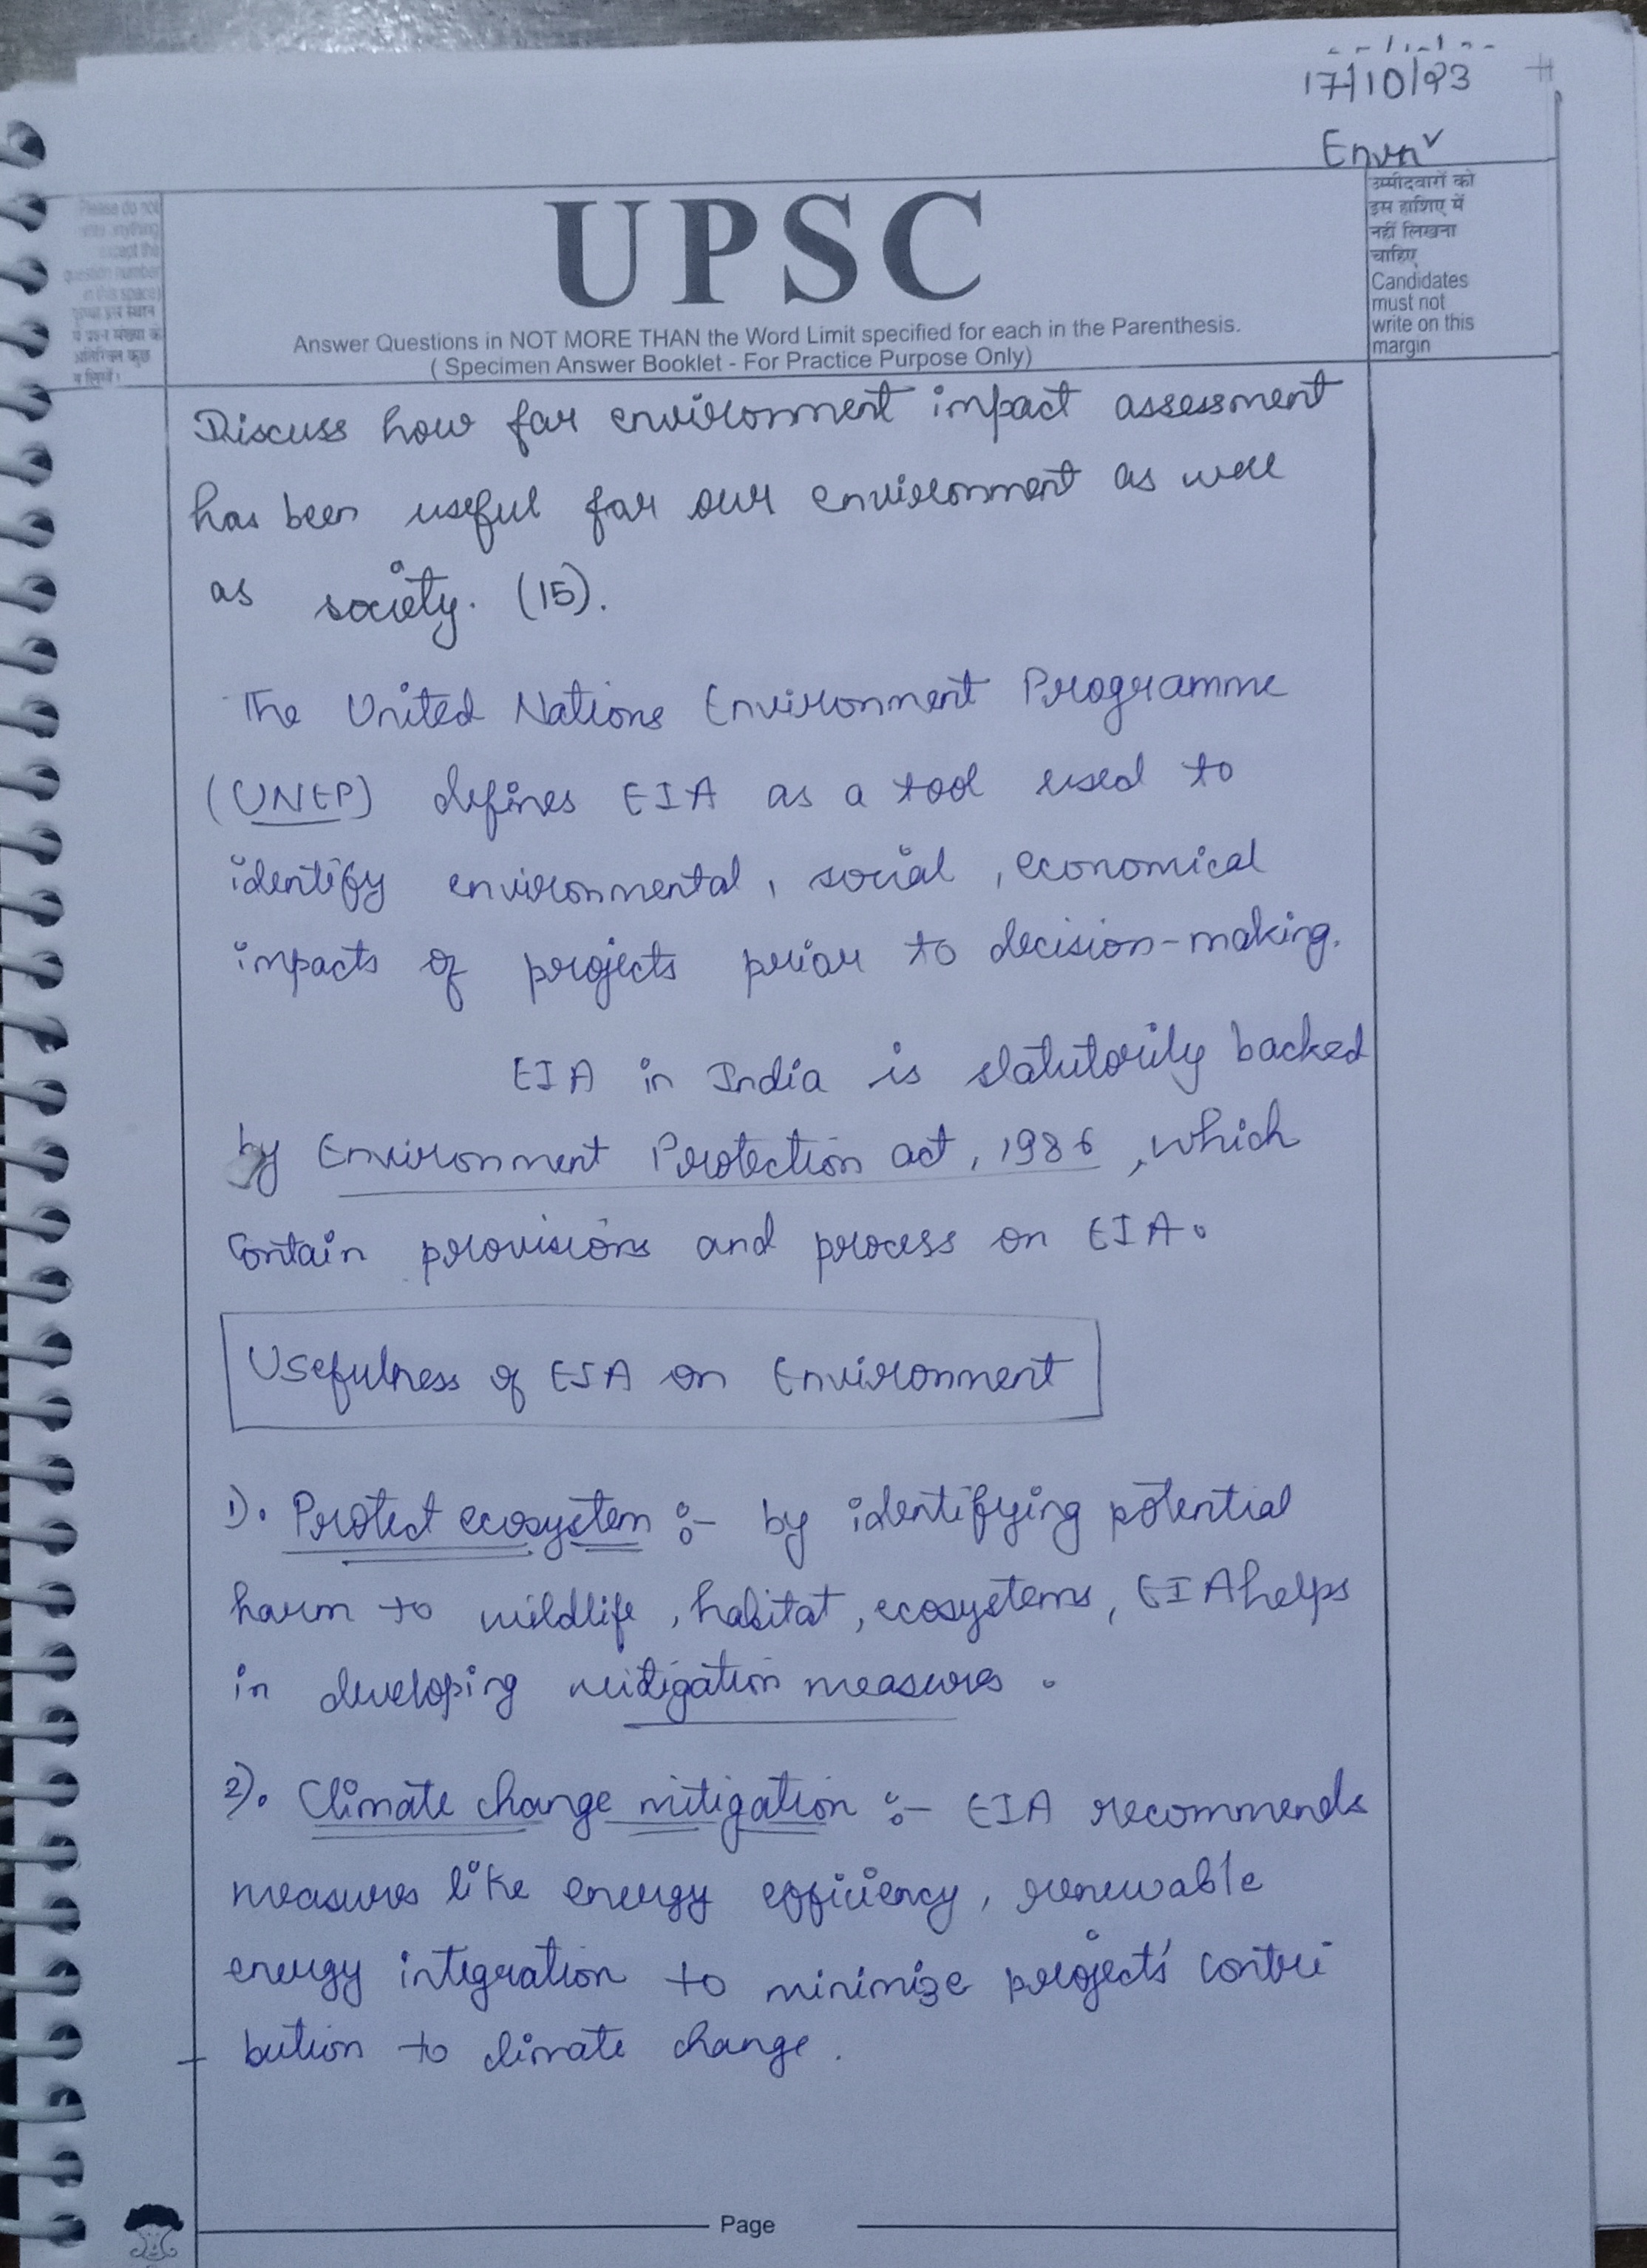 17/10/23
Envn
UPSC
Answer Questions in NOT MORE THAN the Word Limit specified for each in the Parenthesis.
( Specimen Answer Booklet - For Practice Purpose Only)
Please do not
write anything
except the
question number
in this space
उम्मीदवारों को
इस हाशिए में
नहीं लिखना
चाहिए
Candidates
must not
write on this
margin
Discuss how far environment impact assessment
has been useful for our environment as well
as society. (15).
The United Nations Environment Programme
(UNEP) defines EIA as a tool used to
identify environmental, social, economical
impacts of projects prior to decision-making.
EIA in India is statutorily backed
by Environment Protection act, 1986, which
contain provisions and process on EIA.
Usefulness of EIA on Environment
1). Protect ecosystem :- by identifying potential
harm to wildlife, habitat, ecosystems, EIA helps
in developing mitigation measures.
2). Climate change mitigation :- EIA recommends
measures like energy efficiency, renewable
energy integration to minimize projects' contri
bution to climate change.
Page